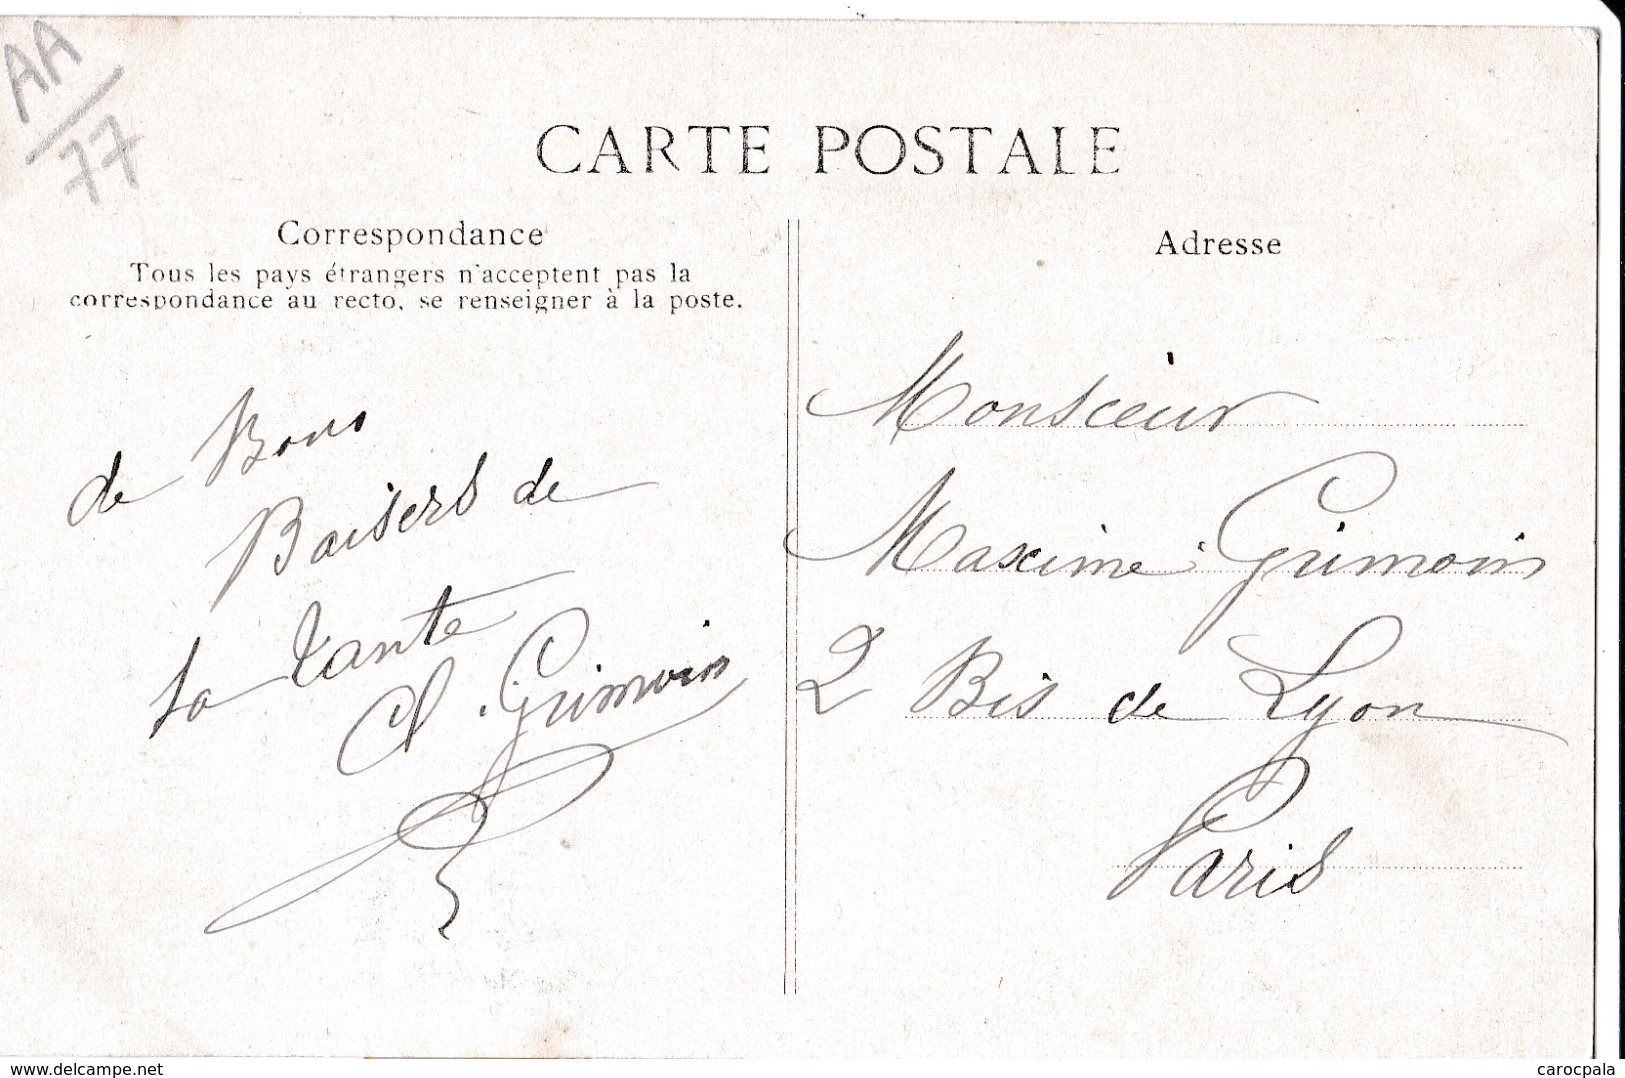 AA
77
CARTE POSTALE
Correspondance
Tous les pays étrangers n'acceptent pas la
correspondance au recto, se renseigner à la poste.
de Bons
Baisers de
ta Tante
Cl. Grimoin
Adresse
Monsieur
Maxime Grimoin
2 Bis de Lyon
Paris
www.delcampe.net
carocpala